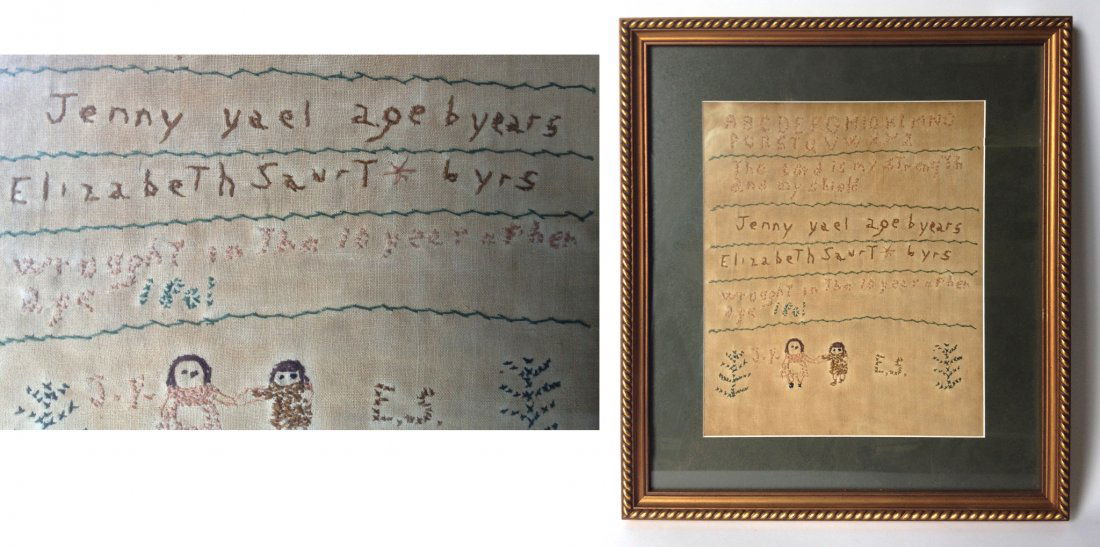 Jenny yael age 6 years
ElizabeTh SaurT * 6 yrs
wrought in The 10 year of her
age
J.Y.
E.S.
ABCDEFGHIJKLMNO
PQRSTUVWXYZ
The Lord is my strength
and my shield
Jenny yael age 6 years
ElizabeTh SaurT * 6 yrs
wrought in The 10 year of her
age
J.Y.
E.S.